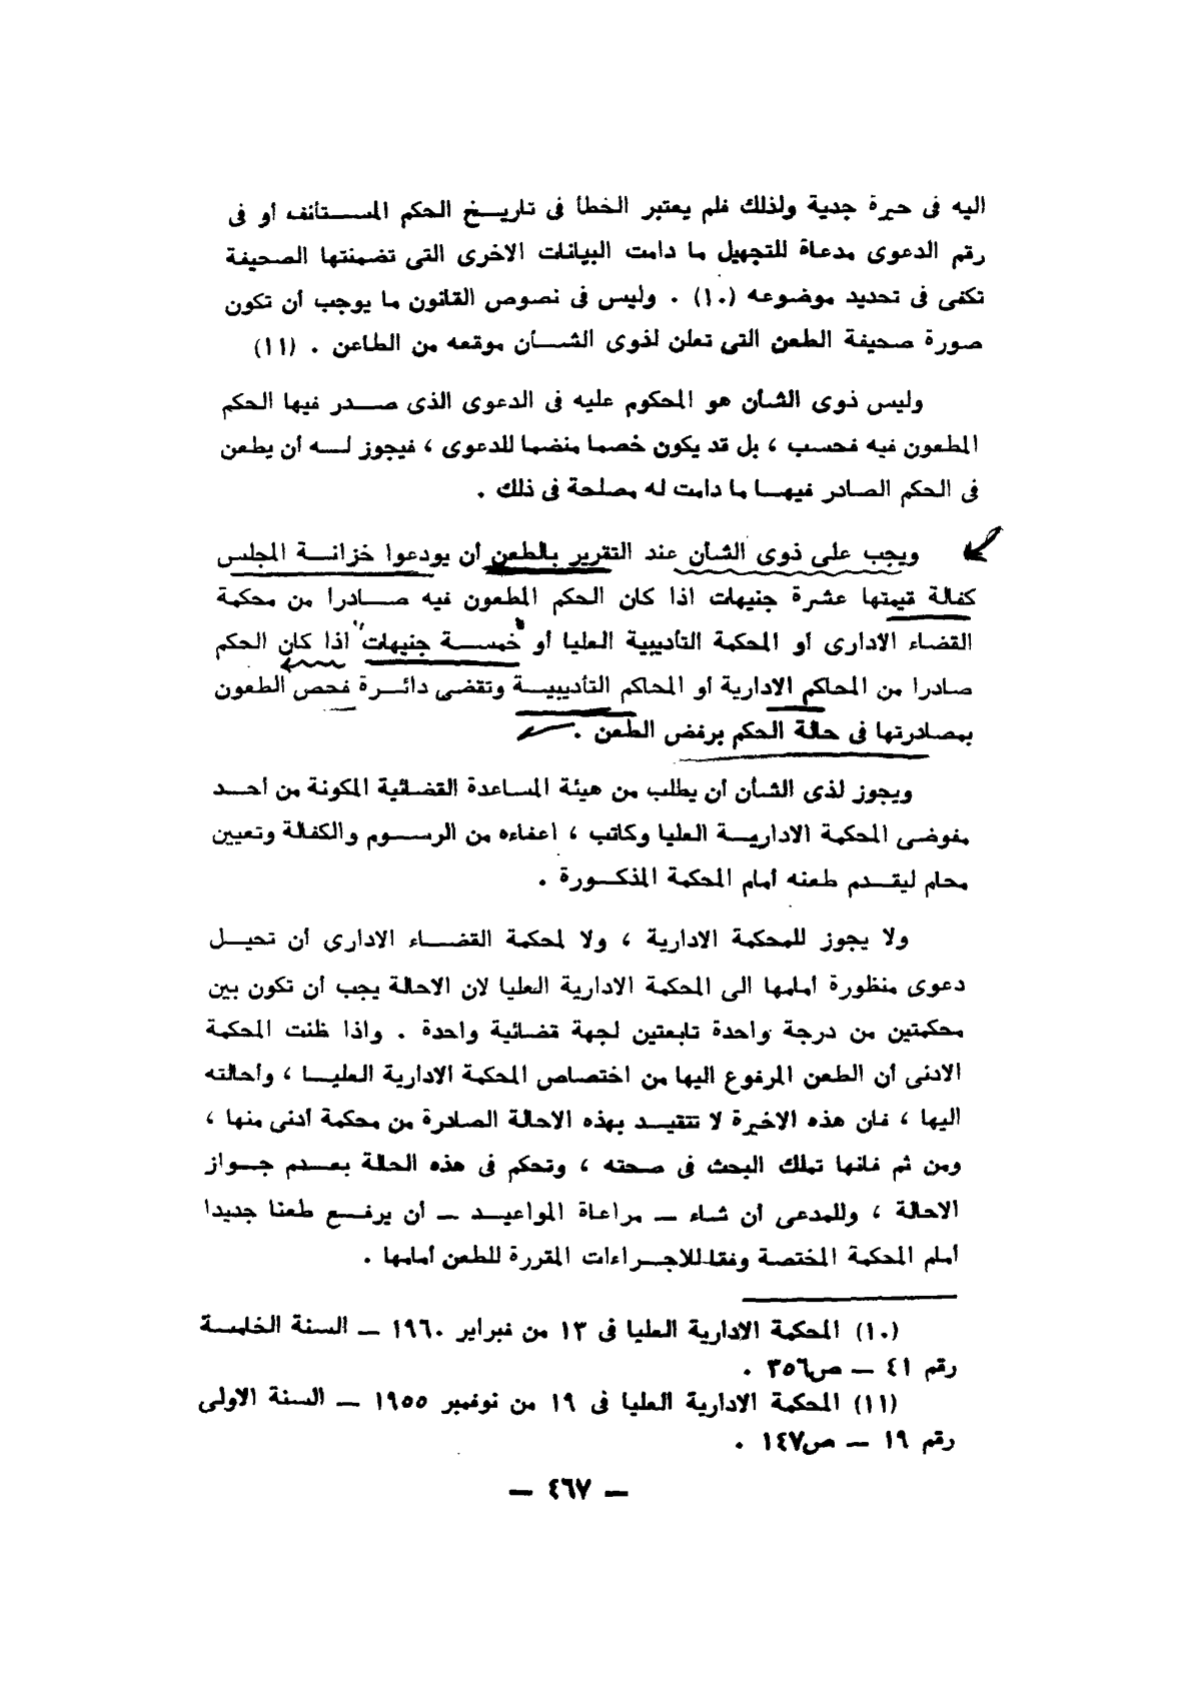 اليه فى حيرة جدية ولذلك فلم يعتبر الخطأ فى تاريخ الحكم المستأنف أو فى
رقم الدعوى مدعاة للتجهيل ما دامت البيانات الاخرى التى تضمنتها الصحيفة
تكفى فى تحديد موضوعه (١٠) . وليس فى نصوص القانون ما يوجب أن تكون
صورة صحيفة الطعن التى تعلن لذوى الشأن موقعه من الطاعن . (١١)
وليس ذوى الشأن هو المحكوم عليه فى الدعوى الذى صدر فيها الحكم
المطعون فيه فحسب ، بل قد يكون خصما منضما للدعوى ، فيجوز له أن يطعن
فى الحكم الصادر فيها ما دامت له مصلحة فى ذلك .
ويجب على ذوى الشأن عند التقرير بالطعن أن يودعوا خزانة المجلس
كفالة قيمتها عشرة جنيهات اذا كان الحكم المطعون فيه صادرا من محكمة
القضاء الادارى أو المحكمة التأديبية العليا أو خمسة جنيهات اذا كان الحكم
صادرا من المحاكم الادارية أو المحاكم التأديبية وتقضى دائرة فحص الطعون
بمصادرتها فى حالة الحكم برفض الطعن .
ويجوز لذى الشأن أن يطلب من هيئة المساعدة القضائية المكونة من أحد
مفوضى المحكمة الادارية العليا وكاتب ، اعفاءه من الرسوم والكفالة وتعيين
محام ليقدم طعنه أمام المحكمة المذكورة .
ولا يجوز للمحكمة الادارية ، ولا لمحكمة القضاء الادارى أن تحيل
دعوى منظورة أمامها الى المحكمة الادارية العليا لان الاحالة يجب أن تكون بين
محكمتين من درجة واحدة تابعتين لجهة قضائية واحدة . واذا ظنت المحكمة
الادنى أن الطعن المرفوع اليها من اختصاص المحكمة الادارية العليا ، وأحالته
اليها ، فان هذه الاخيرة لا تتقيد بهذه الاحالة الصادرة من محكمة أدنى منها ،
ومن ثم فانها تملك البحث فى صحته ، وتحكم فى هذه الحالة بعدم جواز
الاحالة ، وللمدعى أن شاء – مراعاة المواعيد – أن يرفع طعنا جديدا
أمام المحكمة المختصة وفقا للاجراءات المقررة للطعن أمامها .
(١٠) المحكمة الادارية العليا فى ١٣ من فبراير ١٩٦٠ – السنة الخامسة
رقم ٤١ – ص٣٥٦ .
(١١) المحكمة الادارية العليا فى ١٩ من نوفمبر ١٩٥٥ – السنة الاولى
رقم ١٩ – ص١٤٧ .
– ٤٦٧ –